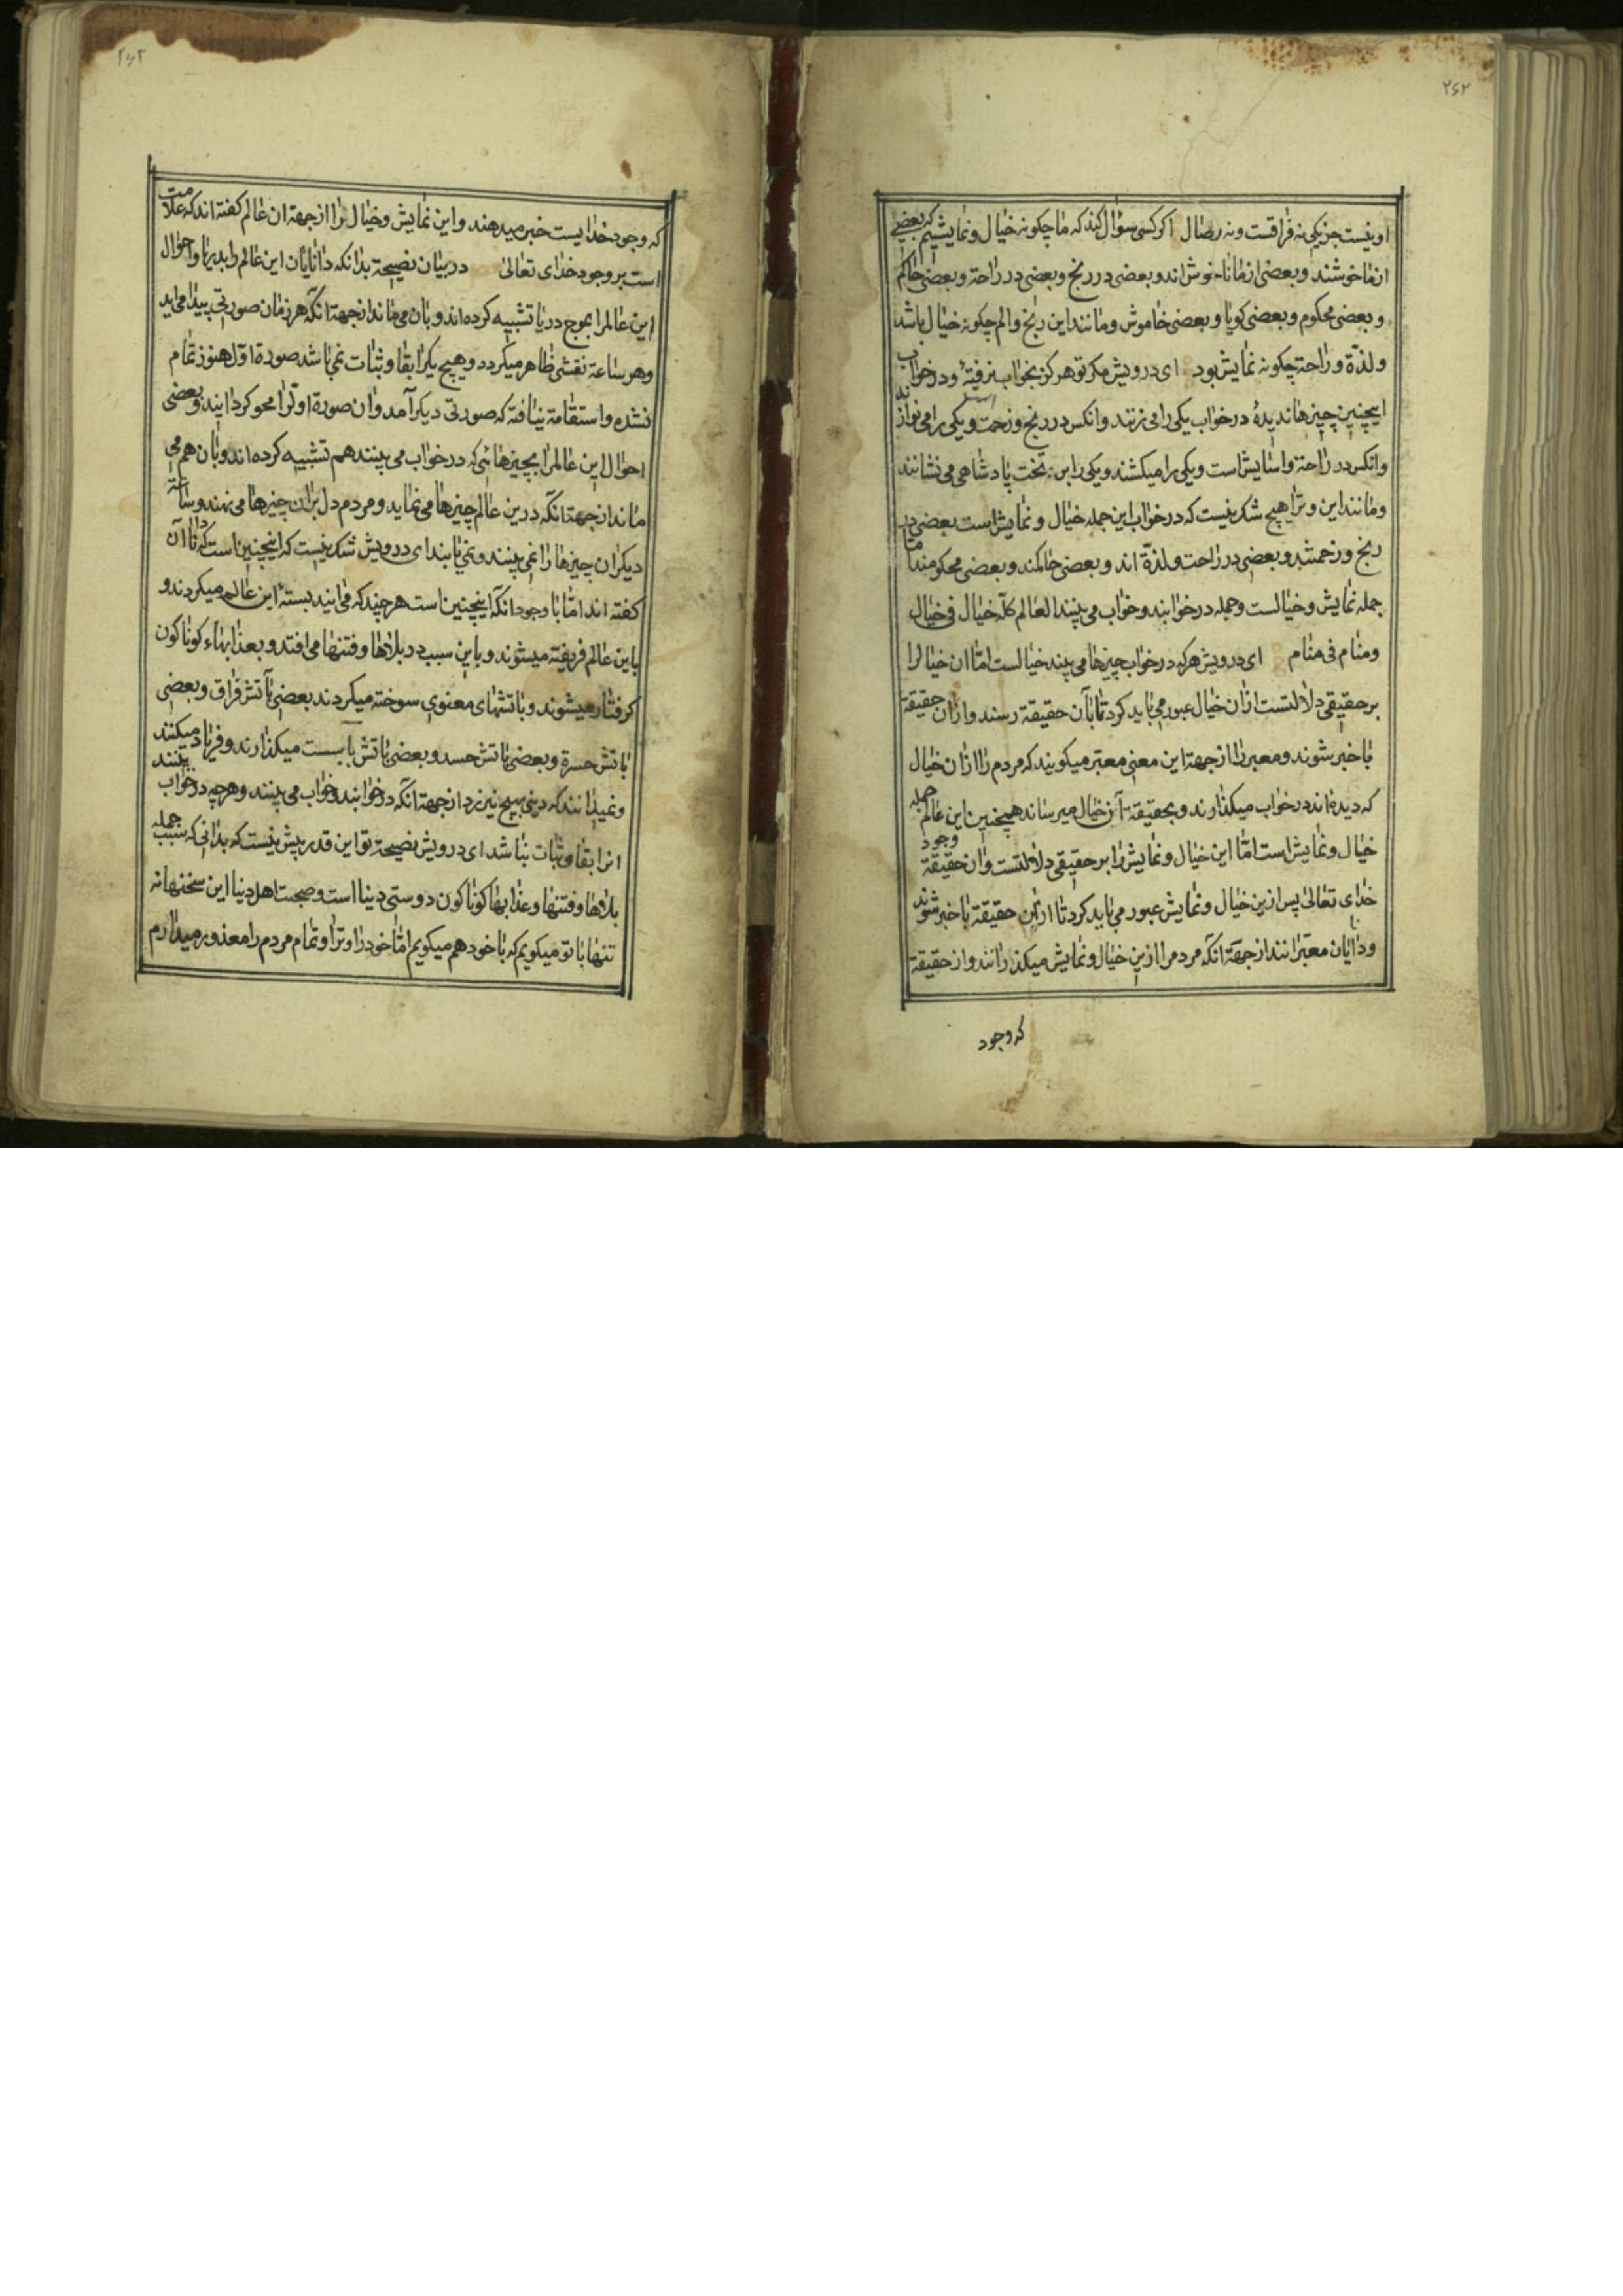 ۲۶۲
او نیست جز یکی نه فراقست و نه وصال اکر کسی سؤال کند که ما چکونه خیال و نمایشیم که بعضی
از ما خوشند و بعضی از ما ناخوش اند و بعضی در رنج و بعضی در راحة و بعضی حاکم
و بعضی محکوم و بعضی کویا و بعضی خاموش و مانند این رنج و الم چکونه خیال باشد
و لذّة و راحة چکونه نمایش بود ای درویش مکر تو هرکز بخواب نرفتهٔ و در خواب
اینچنین چیزها ندیدهٔ در خواب یکی را می زنند و انکس در رنج و زحمت است و یکی را می نوازند
و انکس در راحة و اسایش است و یکی را میکشند و یکی را بر تخت پادشاهی می نشانند
و مانند این و ترا هیچ شک نیست که در خواب این جمله خیال و نمایش است بعضی در
رنج و زحمتند و بعضی در راحت و لذّة اند و بعضی حاکمند و بعضی محکومند اما
جمله نمایش و خیالست و جمله در خوابند و خواب می بینند العالم کلّه خیال فی خیال
و منام فی منام ای درویش هرکه در خواب چیزها می بیند خیالست امّا ان خیال را
بر حقیقی دلالتست از ان خیال عبور می باید کرد تا بآن حقیقة رسند و از ان حقیقة
با خبر شوند و معبر را از جهة این معنی معتبر میکویند که مردم را از ان خیال
که دیده اند در خواب میکذارند و بحقیقة آن خیال میرساند همچنین این عالم جمله
خیال و نمایش است امّا این خیال و نمایش را بر حقیقی دلالتست و ان حقیقة وجود
خدای تعالی پس ازین خیال و نمایش عبور می باید کرد تا از ان حقیقة با خبر شوند
و دانایان معبّرانند از جهة آنکه مردم را ازین خیال و نمایش میکذرانند و از حقیقة
که وجود
۲۶۳
که وجود خدایست خبر میدهند و این نمایش و خیال را از جهة ان عالم کفته اند که علامت
است بر وجود خدای تعالی در بیان نصیحة بدانکه دانایان این عالم را بدریا و احوال
این عالم را بموج دریا تشبیه کرده اند و بان می ماند از جهة آنکه هر زمان صورتی پیدا می اید
و هر ساعة نقشی ظاهر میکردد و هیچ یک را بقا و ثبات نمی باشد صورة اوّل هنوز تمام
نشده و استقامة نیافته که صورتی دیکر آمد و ان صورة اوّل را محو کردانید و بعضی
احوال این عالم را بچیزهائی که در خواب می بینند هم تشبیه کرده اند و بان هم می
ماند از جهة انکه درین عالم چیزها می نماید و مردم دل بران چیزها می نهند و ساعة
دیکر ان چیزها را نمی بینند و نمی یابند ای درویش شک نیست که اینچنین است که دانا آن
کفته اند امّا با وجود انکه اینچنین است هرچند که می ایند بستهٔ این عالم میکردند و
باین عالم فریفته میشوند و باین سبب در بلاها و فتنها می افتد و بعذابهاء کوناکون
کرفتار میشوند و باتشهای معنوی سوخته میکردند بعضی بآتش فراق و بعضی
باتش حسرة و بعضی باتش حسد و بعضی باتش بایست میکذارند و فریاد میکنند
و نمیدانند که دنیی بهیچ نیرزد از جهة آنکه در خوابند و خواب می بینند و هرچه در خواب بینند
انرا بقا و ثبات نباشد ای درویش نصیحة تو این قدر بیش نیست که بدانی که سبب جمله
بلاها و فتنها و عذابها کوناکون دوستی دنیا است و صحبت اهل دنیا این سخنها نه
تنها با تو میکویم که با خود هم میکویم امّا خود را و ترا و تمام مردم را معذور میدارم